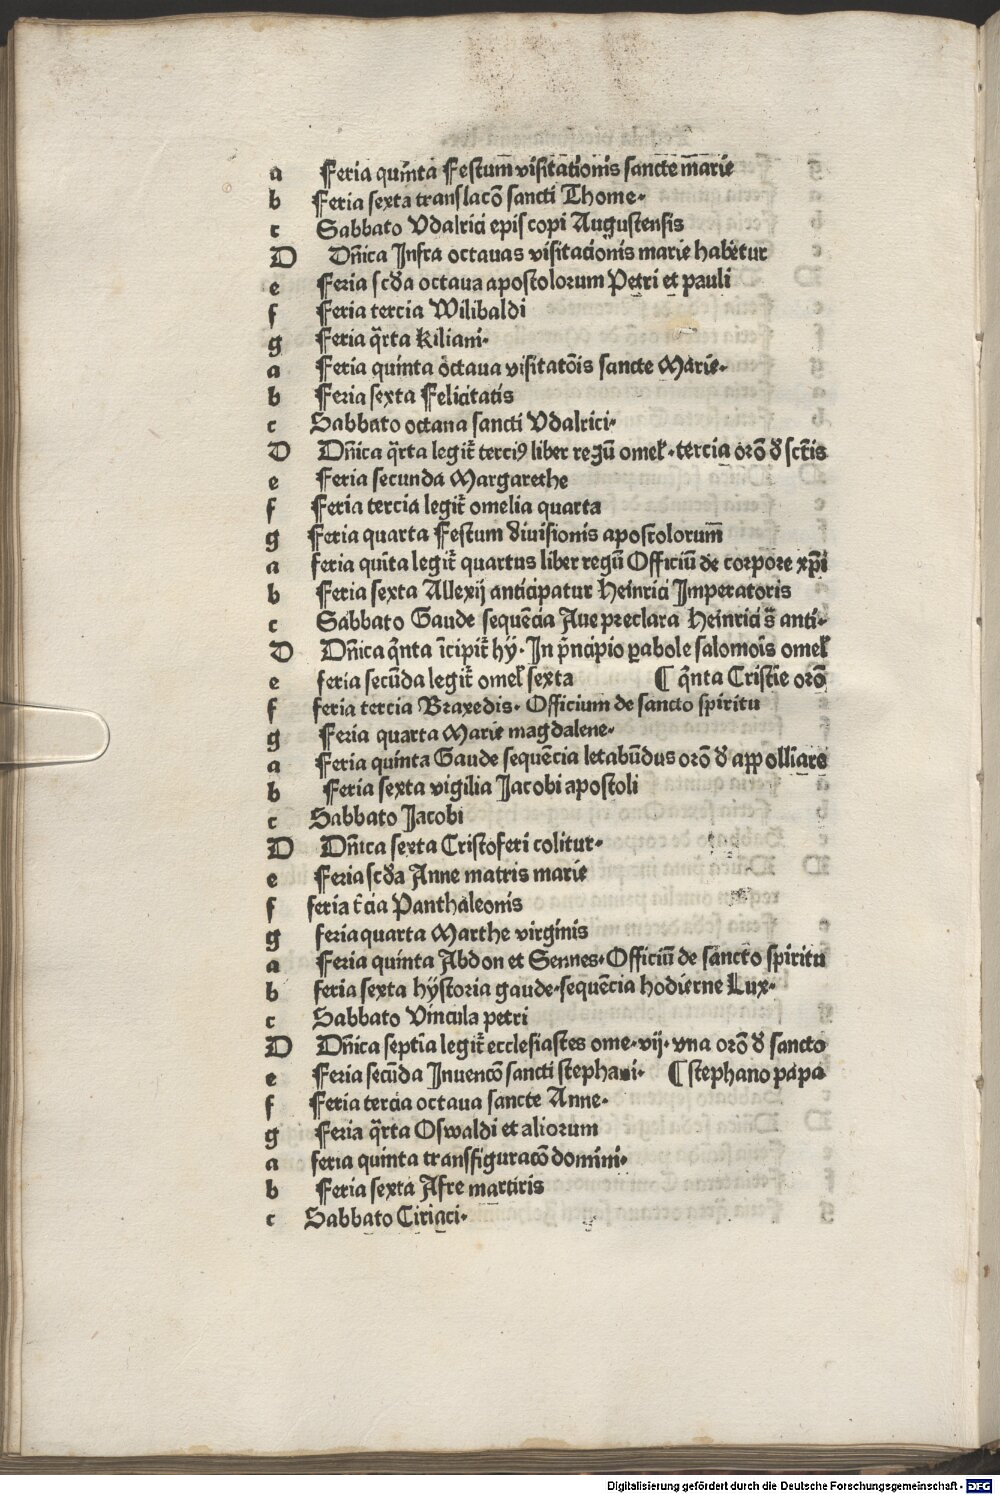 a Feria quinta Festum̄ visitationis sancte m̄arie
b Feria sexta translacō sancti Thome·
c Sabbato Vdalrici episcopi Augustensis
D Dn̄ica Infra octauas visitationis marie habetur
e Feria scd̄a octaua apostolorum Petri et pauli
f Feria tercia Wilibaldi
g Feria q̄rta Kiliani·
a Feria quinta octaua visitatōis sancte Marie·
b Feria sexta Felicitatis
c Sabbato octaua sancti Vdalrici·
D Dn̄ica q̄rta legit᷑ terciꝰ liber regū omel̄·tercia orō d̄ sct̄is
e Feria secunda Margarethe
f Feria tercia legit᷑ omelia quarta
g Feria quarta Festum diuisionis apostolorum̄
a feria quīta legit᷑ quartus liber regū Officiū de corpore xp̄i
b Feria sexta Allexij anticipatur Heinrici Imperatoris
c Sabbato Gaude sequēcia Aue preclara Heinrici s̄ anti·
D Dn̄ica q̄nta īcipit᷑ hy̅· In p̄ncipio ꝑabole salomōis omel̄
e feria secūda legit᷑ omel̄ sexta ¶ q̄nta Cristie orō
f feria tercia Braxedis· Officium de sancto spiritu
g Feria quarta Marie magdalene·
a Feria quinta Gaude sequēcia letabūdus orō d̄ appolliare
b Feria sexta vigilia Jacobi apostoli
c Sabbato Jacobi
D Dn̄ica sexta Cristoferi colitur·
e Feria scd̄a Anne matris marie
f feria t̄cia Panthaleonis
g feria quarta Marthe virginis
a Feria quinta Abdon et Sennes·Officiū de sancto spiritu
b feria sexta hystoria gaude·sequēcia hodierne Lux·
c Sabbato Vincula petri
D Dn̄ica septīa legit᷑ ecclesiastes ome·vij·vna orō d̄ sancto
e Feria secūda Inuencō sancti stephani· ¶ stephano papa
f Feria tercia octaua sancte Anne·
g Feria q̄rta Oswaldi et aliorum
a feria quinta transfiguracō domini·
b Feria sexta Afre martiris
c Sabbato Ciriaci·
Digitalisierung gefördert durch die Deutsche Forschungsgemeinschaft - DFG